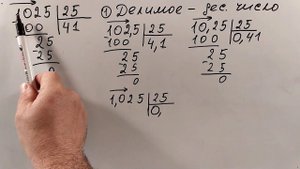 1025 25
100 41
25
25
0
① Делимое – дес. число
102,5 25
100 4,1
25
25
0
10,25 25
100 0,41
25
25
0
1,025 25
0,